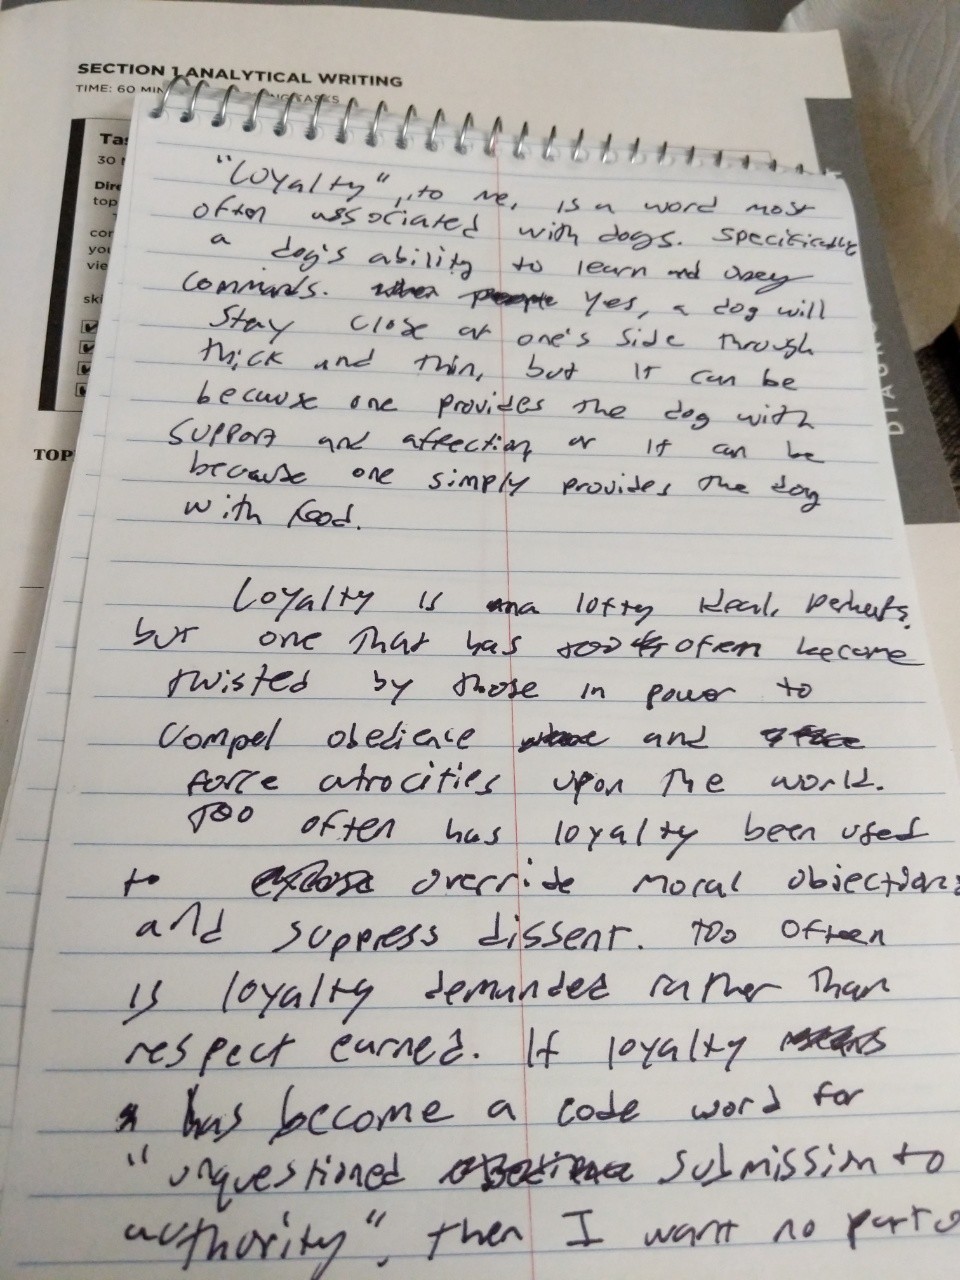 SECTION 1 ANALYTICAL WRITING
TIME: 60 MIN
Tas
30
Dire
top
con
you
vie
ski
TOP
DIAGNO
"Loyalty", to me, is a word most
often associated with dogs. Specifically
a dog's ability to learn and obey
commands. Yes, a dog will
stay close at one's side through
thick and thin, but it can be
because one provides the dog with
support and affection or it can be
because one simply provides the dog
with food.
Loyalty is a lofty ideal, perhaps,
but one that has too often become
twisted by those in power to
compel obedience and
force atrocities upon the world.
Too often has loyalty been used
to override moral objections
and suppress dissent. Too often
is loyalty demanded rather than
respect earned. If loyalty
has become a code word for
"unquestioned submission to
authority", then I want no part o